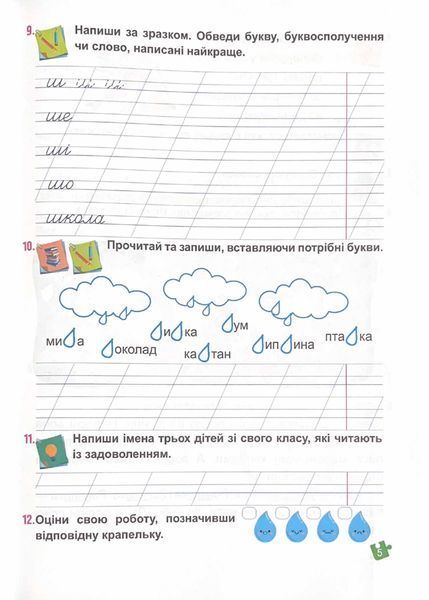 9. Напиши за зразком. Обведи букву, буквосполучення
чи слово, написані найкраще.
ш
ше
ші
шо
школа
10. Прочитай та запиши, вставляючи потрібні букви.
ми а
околад
и ка
ка тан
ум
ип ина
пта ка
11. Напиши імена трьох дітей зі свого класу, які читають
із задоволенням.
12. Оціни свою роботу, позначивши
відповідну крапельку.
5